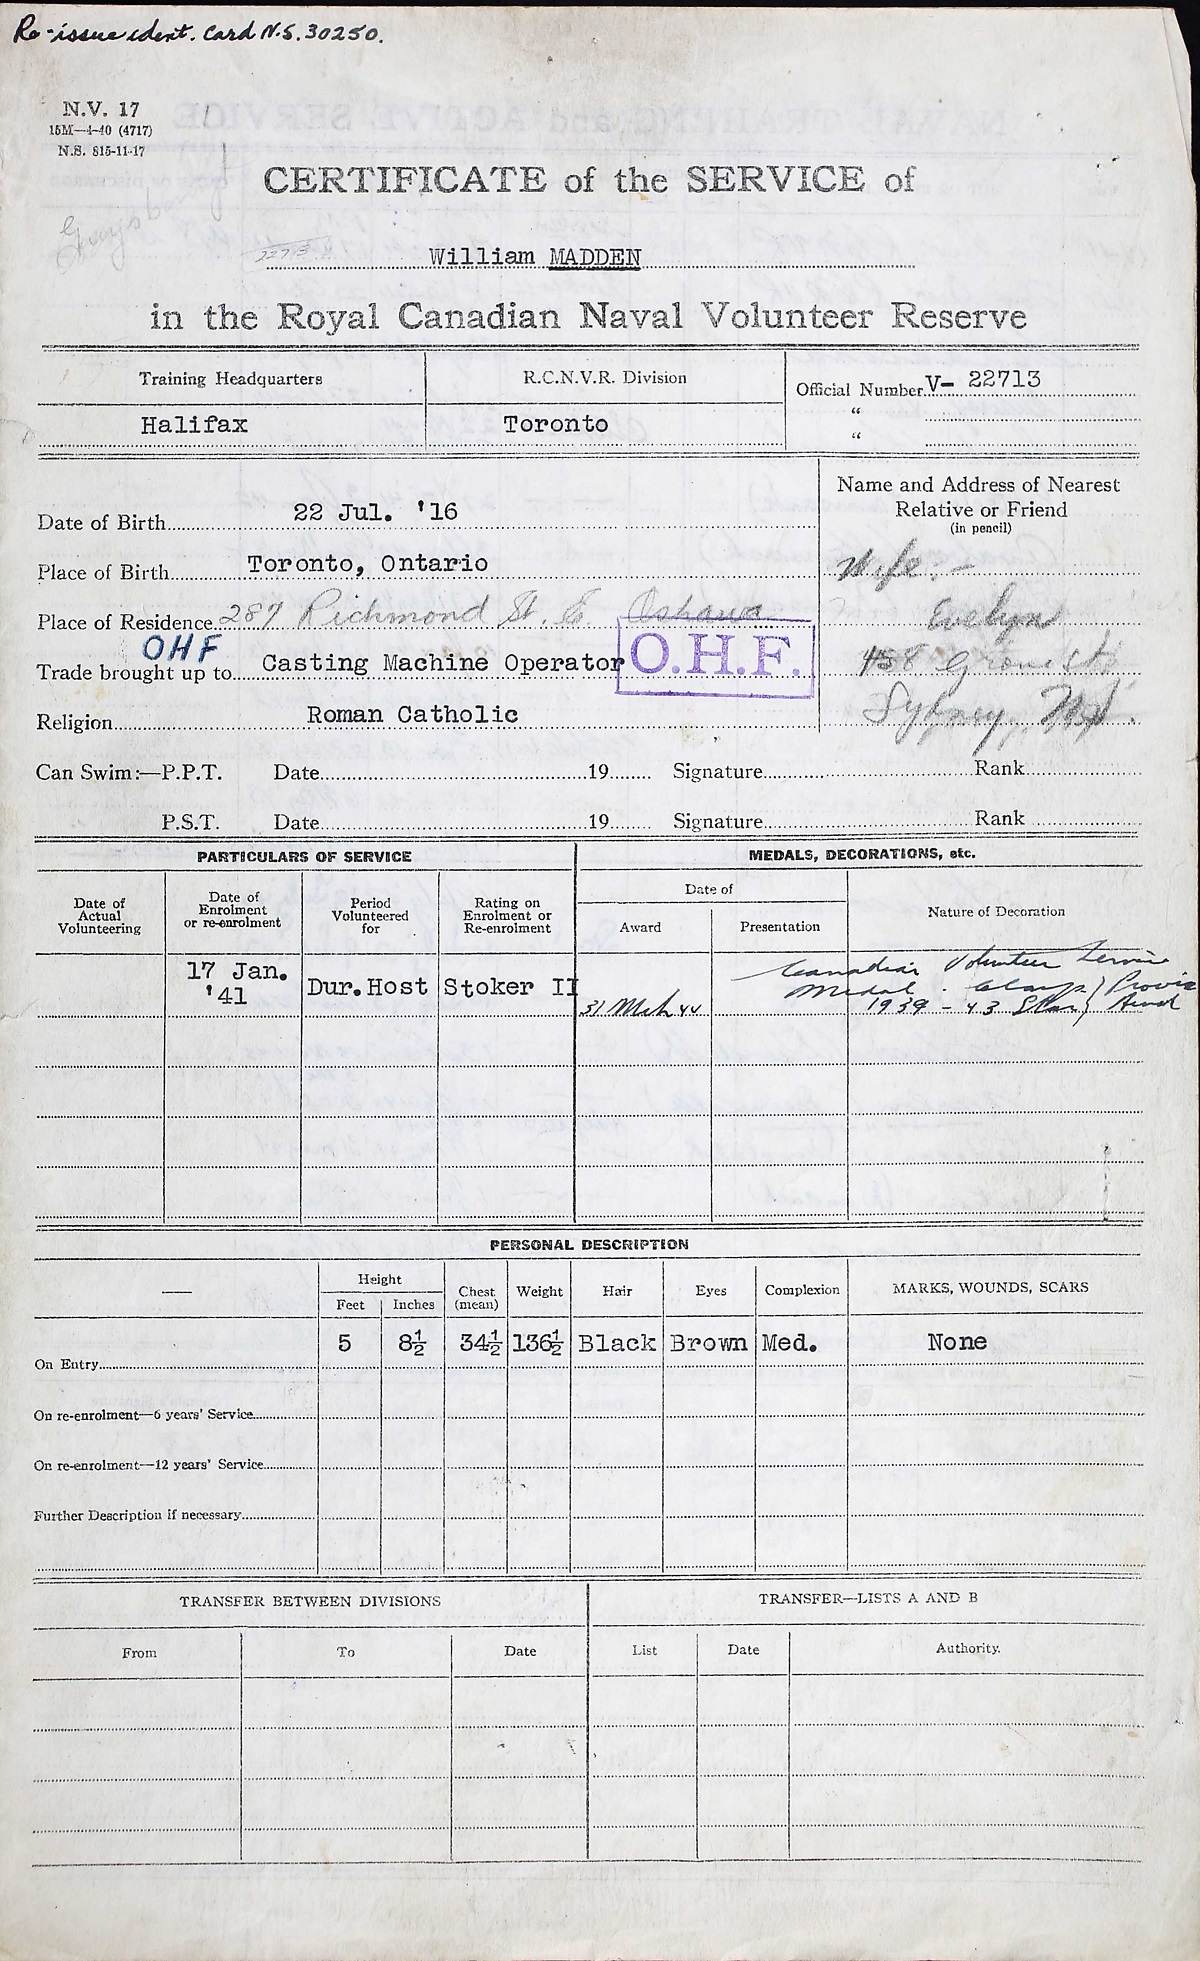 Re-issue ident. Card N.S. 30250.
N.V. 17
15M—4-40 (4717)
N.S. 815-11-17
CERTIFICATE of the SERVICE of
William MADDEN
in the Royal Canadian Naval Volunteer Reserve
Training Headquarters
R.C.N.V.R. Division
Official Number V- 22713
Halifax
Toronto
“
“
Name and Address of Nearest
Relative or Friend
(in pencil)
Date of Birth 22 Jul. '16
Place of Birth Toronto, Ontario
Wife:-
Place of Residence 287 Richmond St. E. Oshawa.
Evelyn
OHF
Trade brought up to Casting Machine Operator
O.H.F.
458 Grove St.
Religion Roman Catholic
Sydney, N.S.
Can Swim:—P.P.T. Date 19 Signature Rank
P.S.T. Date 19 Signature Rank
PARTICULARS OF SERVICE
MEDALS, DECORATIONS, etc.
Date of
Actual
Volunteering
Date of
Enrolment
or re-enrolment
Period
Volunteered
for
Rating on
Enrolment or
Re-enrolment
Date of
Award
Presentation
Nature of Decoration
17 Jan.
'41
Dur. Host
Stoker II
31 Mch 44
Canadian Volunteer Service
Medal. Clasp
1939 - 43 Star
PERSONAL DESCRIPTION
—
Height
Feet
Inches
Chest
(mean)
Weight
Hair
Eyes
Complexion
MARKS, WOUNDS, SCARS
On Entry 5 8½ 34½ 136½ Black Brown Med. None
On re-enrolment—6 years' Service
On re-enrolment—12 years' Service
Further Description if necessary
TRANSFER BETWEEN DIVISIONS
TRANSFER—LISTS A AND B
From
To
Date
List
Date
Authority.